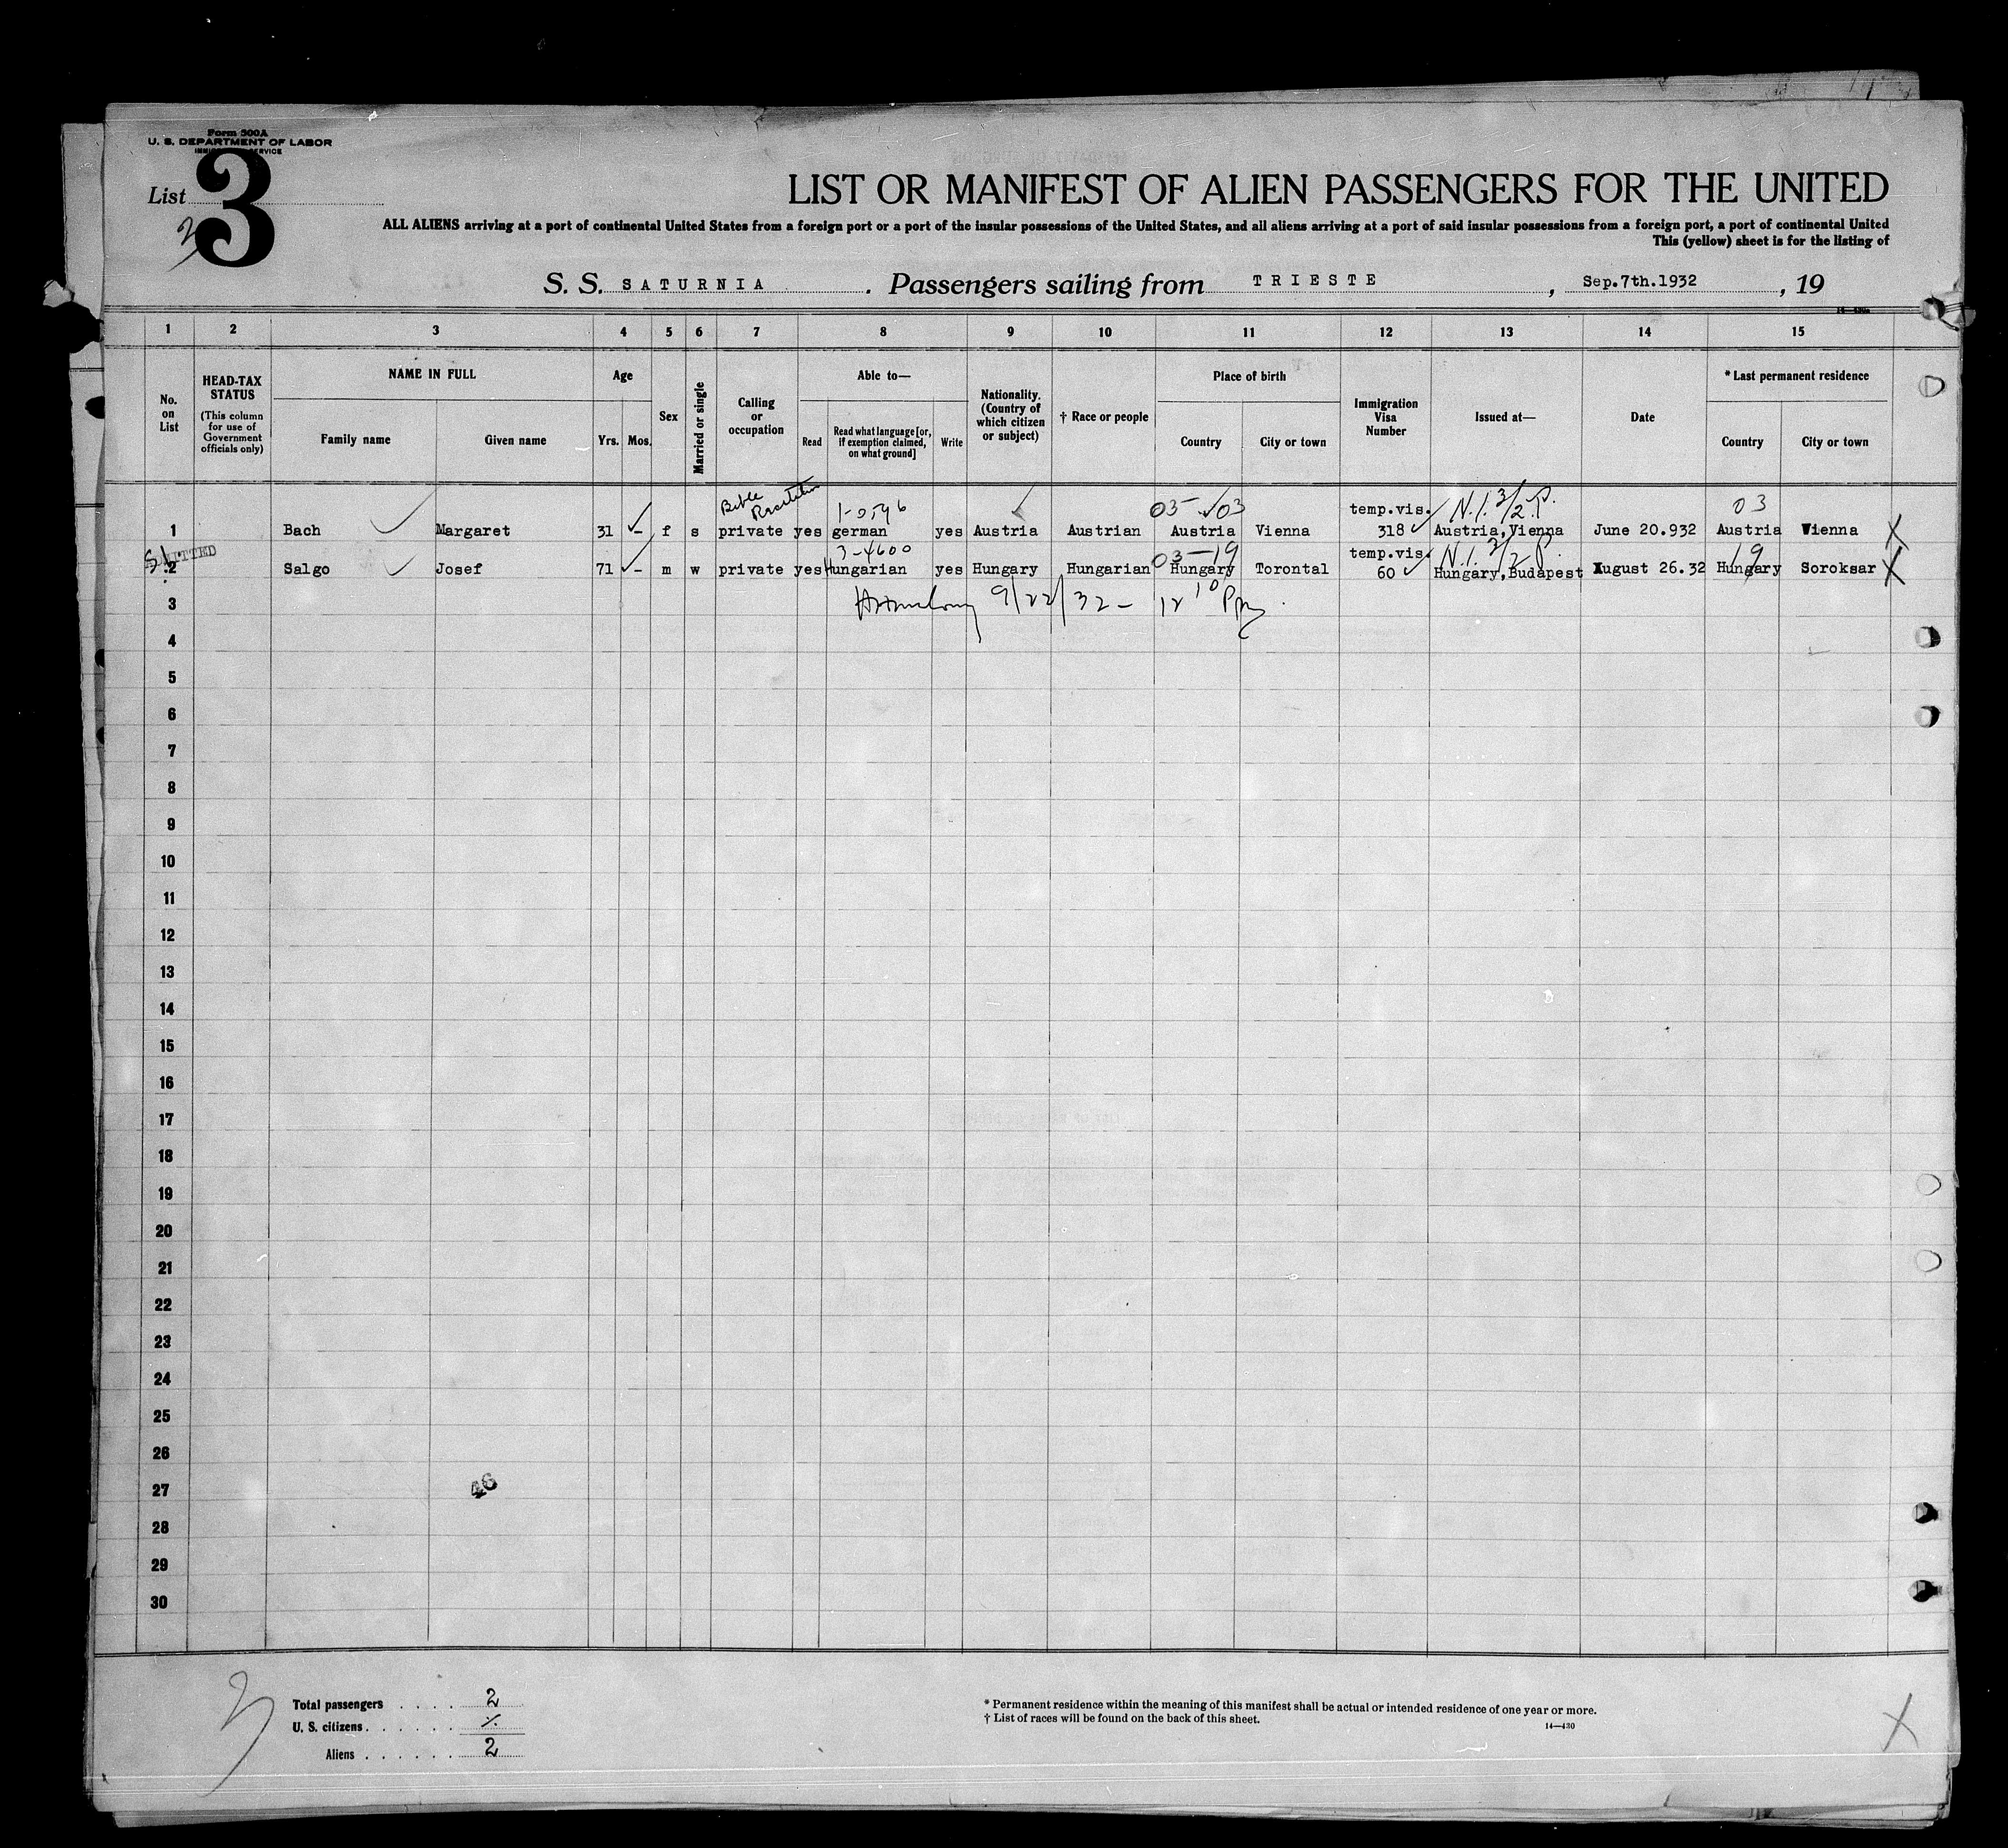 Form 500A
U. S. DEPARTMENT OF LABOR
IMMIGRATION SERVICE
List 3
3
LIST OR MANIFEST OF ALIEN PASSENGERS FOR THE UNITED
ALL ALIENS arriving at a port of continental United States from a foreign port or a port of the insular possessions of the United States, and all aliens arriving at a port of said insular possessions from a foreign port, a port of continental United
This (yellow) sheet is for the listing of
S. S. SATURNIA . Passengers sailing from TRIESTE , Sep.7th.1932 , 19
14—430a
1 2 3 4 5 6 7 8 9 10 11 12 13 14 15
No. on List
HEAD-TAX STATUS (This column for use of Government officials only)
NAME IN FULL Family name Given name
Age Yrs. Mos.
Sex
Married or single
Calling or occupation
Able to— Read Read what language [or, if exemption claimed, on what ground] Write
Nationality. (Country of which citizen or subject)
† Race or people
Place of birth Country City or town
Immigration Visa Number
Issued at—
Date
* Last permanent residence Country City or town
Bible 1-0596 05- 03 temp.vis. N.I. 3/2 P. 03
1 Bach Margaret 31 - f s private yes german yes Austria Austrian Austria Vienna 318 Austria,Vienna June 20.932 Austria Wienna X
3-4600 03-19 temp.vis. N.I. 3/2 P. 19
2 Salgo Josef 71 - m w private yes Hungarian yes Hungary Hungarian Hungary Torontal 60 Hungary,Budapest August 26.32 Hungary Soroksar X
3 9/22/32 - 12 10 P
4
5
6
7
8
9
10
11
12
13
14
15
16
17
18
19
20
21
22
23
24
25
26
27
46
28
29
30
3
Total passengers . . . . 2
U. S. citizens . . . . . . /.
Aliens . . . . . . 2
* Permanent residence within the meaning of this manifest shall be actual or intended residence of one year or more.
† List of races will be found on the back of this sheet.
14—430
X